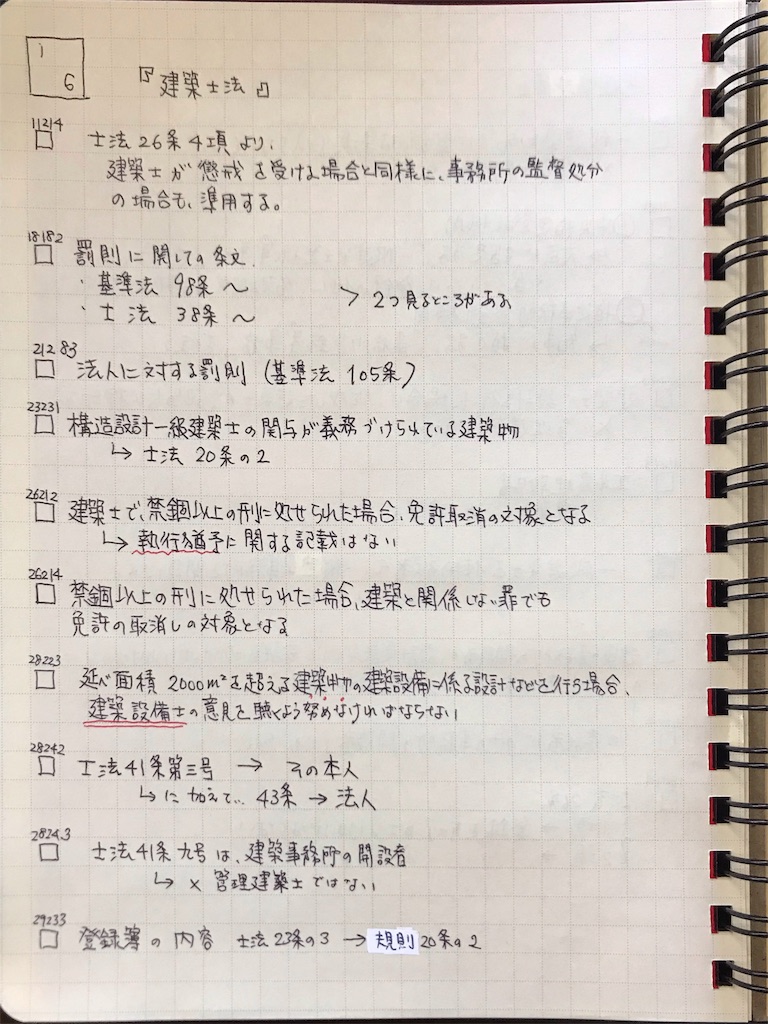 1
6
『建築士法』
11214
士法26条4項より、
建築士が懲戒を受ける場合と同様に、事務所の監督処分
の場合も、準用する。
18182
罰則に関しての条文
・基準法 98条〜
・士法 38条〜
> 2つ見るところがある
21283
法人に対する罰則 (基準法 105条)
23231
構造設計一級建築士の関与が義務づけられている建築物
↳ 士法 20条の2
26212
建築士で、禁錮以上の刑に処せられた場合、免許取消の対象となる
↳ 執行猶予に関する記載はない
26214
禁錮以上の刑に処せられた場合、建築と関係しない罪でも
免許の取消しの対象となる
28223
延べ面積 2000m²を超える建築物の建築設備に係る設計などを行う場合、
建築設備士の意見を聴くよう努めなければならない
28242
士法41条第三号 → その本人
↳ に加えて… 43条 → 法人
28243
士法41条九号は、建築事務所の開設者
↳ × 管理建築士ではない
29233
登録簿の内容 士法23条の3 → 規則20条の2